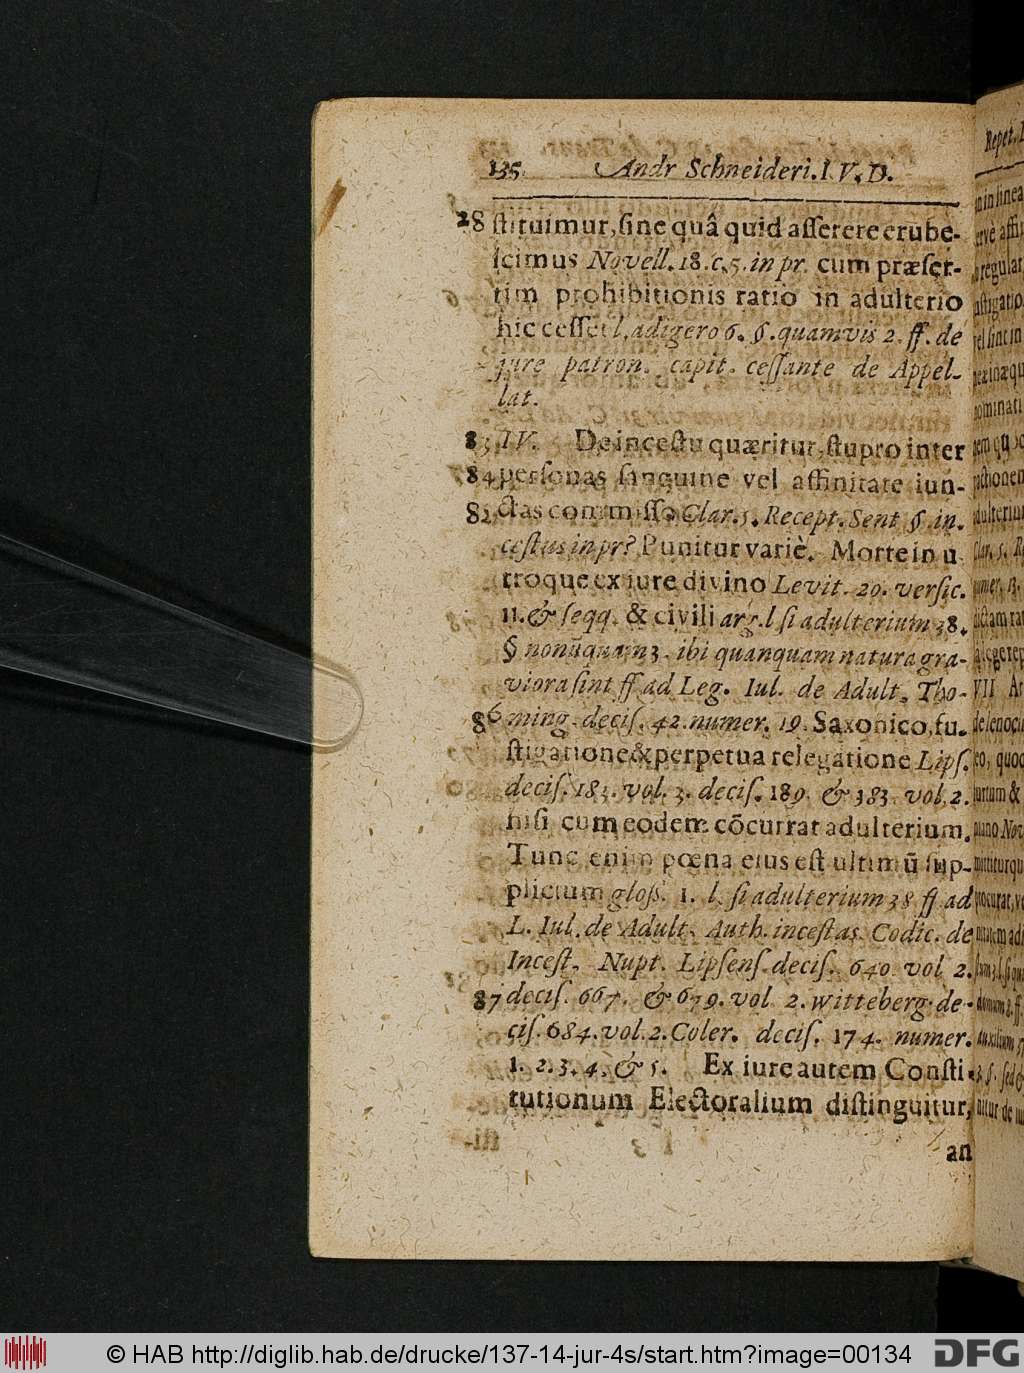 135. Andr Schneideri. I. V. D.
28 ſtituimur, ſine quâ quid aſſerere erube-
ſcimus Novell. 18. c. 5. in pr. cum præſer-
tim prohibitionis ratio in adulterio
hic ceſſet l. adigero 6. §. quamvis 2. ff. de
jure patron. capit. ceſſante de Appel-
lat.
83 IV. De inceſtu quæritur, ſtupro inter
84 perſonas ſanguine vel affinitate iun-
85 ctas commiſſo Clar. 5. Recept. Sent §. in.
ceſtus in pr? Punitur variè. Morte in u
troque ex iure divino Levit. 20. verſic.
11. & ſeqq. & civili arg. l ſi adulterium 38.
§ nonũquam 3. ibi quanquam natura gra-
viora ſint ff ad Leg. Iul. de Adult. Tho-
86 ming. deciſ. 42. numer. 19. Saxonico, fu-
ſtigatione & perpetua relegatione Lipſ.
deciſ. 183. vol. 3. deciſ. 189. & 383. vol. 2.
niſi cum eodem cõcurrat adulterium.
Tunc enim pœna eius eſt ultimũ ſup-
plicium gloſſ. 1. l. ſi adulterium 38 ff ad
L. Iul. de Adult. Auth. inceſtas. Codic. de
Inceſt. Nupt. Lipſenſ. deciſ. 640. vol 2.
87 deciſ. 667. & 679. vol 2. Witteberg. de-
ciſ. 684. vol. 2. Coler. deciſ. 174. numer.
1. 2. 3. 4. & 5. Ex iure autem Conſti-
tutionum Electoralium diſtinguitur,
an
© HAB http://diglib.hab.de/drucke/137-14-jur-4s/start.htm?image=00134
DFG